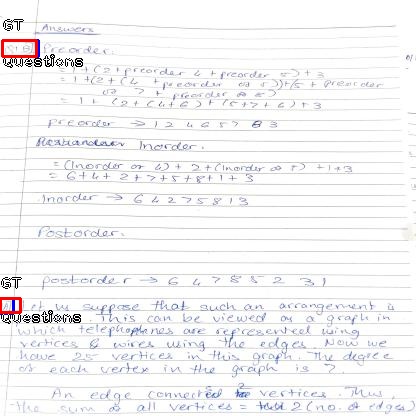 GT
Answers
Preorder:
Questions
= 1 + (2 + preorder 4 + preorder 5) + 3
= 1 + (2 + (4 + preorder of 5)) + (5 + preorder
or 7 + preorder 8
= 1 + (2 + (4+6) + (5+7+6) + 3
preorder → 1 2 4 6 5 7 8 3
Inorder.
= (Inorder or 4) + 2 + (Inorder or 5) + 1 + 3
= 6 + 4 + 2 + 7 + 5 + 8 + 1 + 3
Inorder → 6 4 2 7 5 8 1 3
Postorder:
GT
postorder → 6 4 7 8 5 2 3 1
Let us suppose that such an arrangement is
Questions
This can be viewed as a graph in
which telephones are represented using
vertices & wires using the edges. Now we
have 25 vertices in this graph. The degree
of each vertex in the graph is 7.
An edge connects 2 vertices. Thus,
the sum of all vertices = 2 (no. of edges)